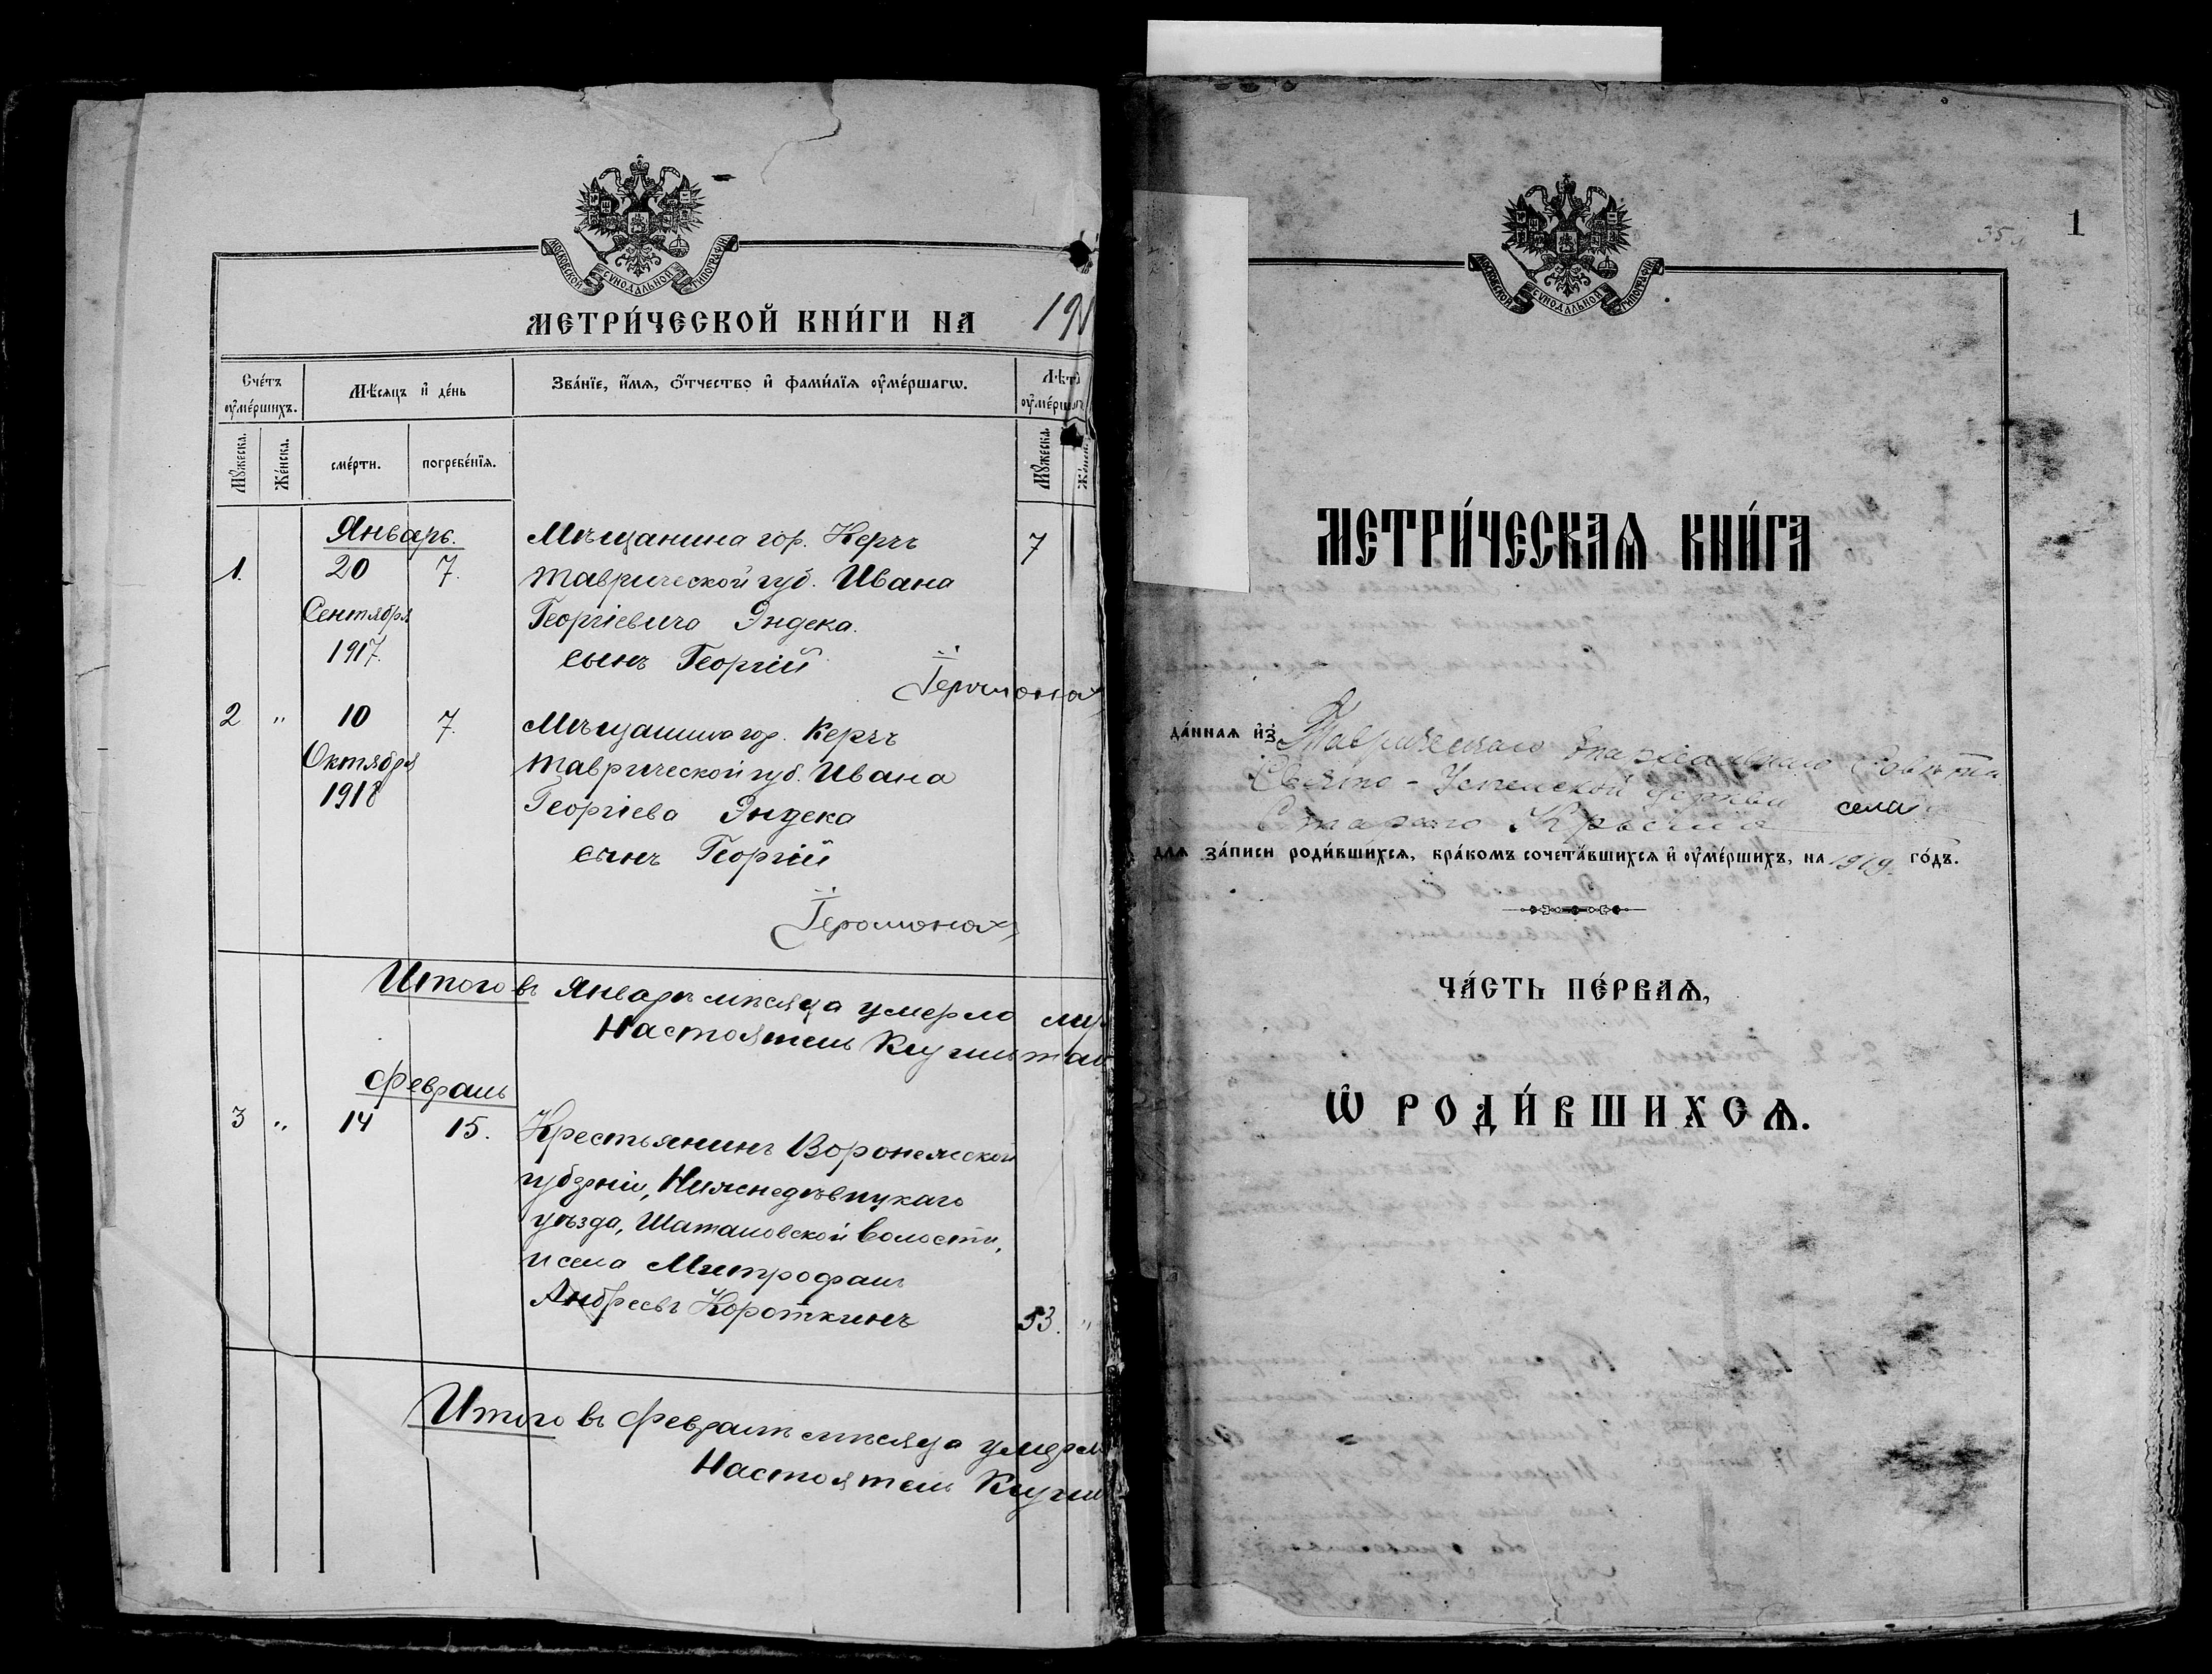 МОСКОВСКОЙ СѴНОДАЛЬНОЙ ТИПОГРАФІИ
МЕТРИ́ЧЕСКОЙ КНИ́ГИ НА 191
Сче́тъ оу҆ме́ршихъ.
Мѣ́сяцъ и҆ де́нь
Зва́нїе, и҆́мя, ѻ҆́тчество и҆ фами́лїя оу҆ме́ршагѡ.
Лѣ́т
оу҆ме́рш
Мꙋ́жеска.
Же́нска.
сме́рти.
погребе́нїя.
Мꙋ́жеска.
Январь.
Мѣщанина гор. Керчь
7
1. 20 7. Таврической губ. Ивана
Сентября Георгіевича Эндека.
1917. сынъ Георгій
Іеромонах
2 " 10 7. Мѣщанина гор. Керчь
Октября Таврической губ. Ивана
1918 Георгіева Эндека
сынъ Георгій
Іеромонах
Итого въ Январѣ мѣсяца умерло
Настоятель
Февраль
3 " 14 15. Крестьянинъ Воронежской
губерніи, Нижнедѣвицкаго
уѣзда, Шаталовской волости,
и села Митрофанъ
Андреевъ Короткинъ 53. "
Итого въ Февралѣ мѣсяца умерл
Настоятель
35 л
1
МОСКОВСКОЙ СѴНОДАЛЬНОЙ ТИПОГРАФІИ
МЕТРИ́ЧЕСКАѦ КНИ́ГА
да́нная и҆з̾ Таврическаго Епархіальнаго Совѣта
Свято-Успенской церкви села
Стараго Крыма
для за́писи роди́вшихся, бра́комъ сочета́вшихся и҆ оу҆ме́ршихъ, на 1919 го́дъ.
ЧА́СТЬ ПЕ́РВАѦ,
Ѽ РОДИ́ВШИХСѦ.